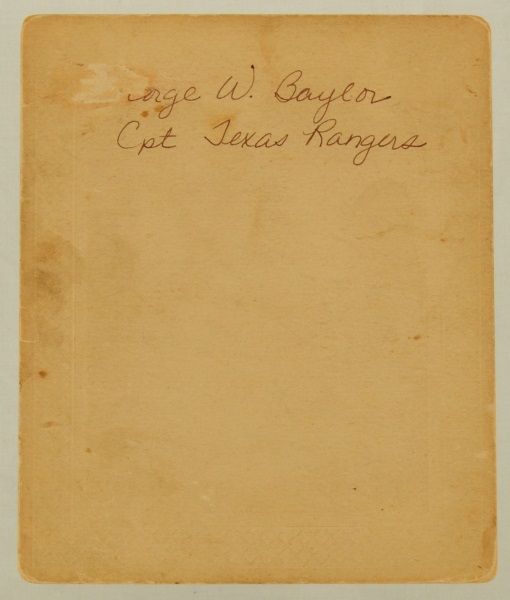 orge W. Baylor
Cpt Texas Rangers